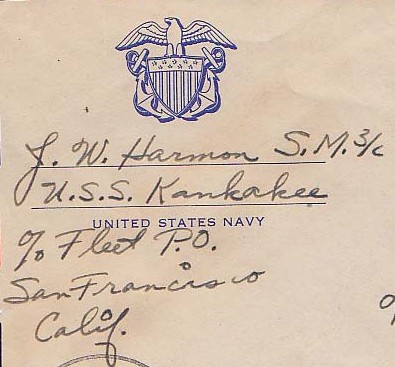 J. W. Harmon S.M. 3/c
U.S.S. Kankakee
UNITED STATES NAVY
c/o Fleet P.O.
San Francisco
Calif.